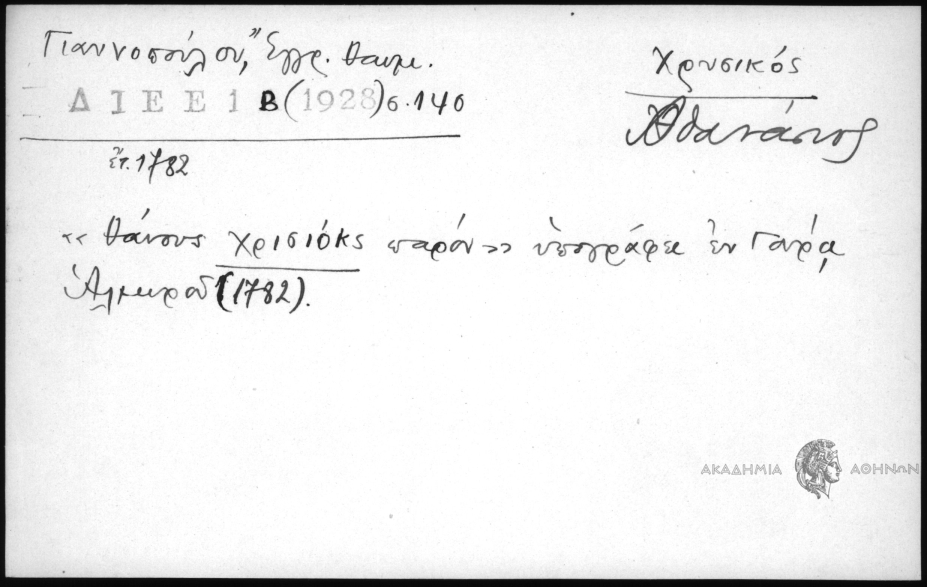 Γιαννοπούλου, Ἔγγρ. Θαυμ.
ΔΙΕΕ 1 Β (1928) σ. 140
ἔτ. 1782
Χρυσικός
Ἀθανάσιος
«θάνους χρισιόκς παρόν» ὑπογράφει ἐν Γούρᾳ
Ἁλμυροῦ (1782).
ΑΚΑΔΗΜΙΑ ΑΘΗΝΩΝ